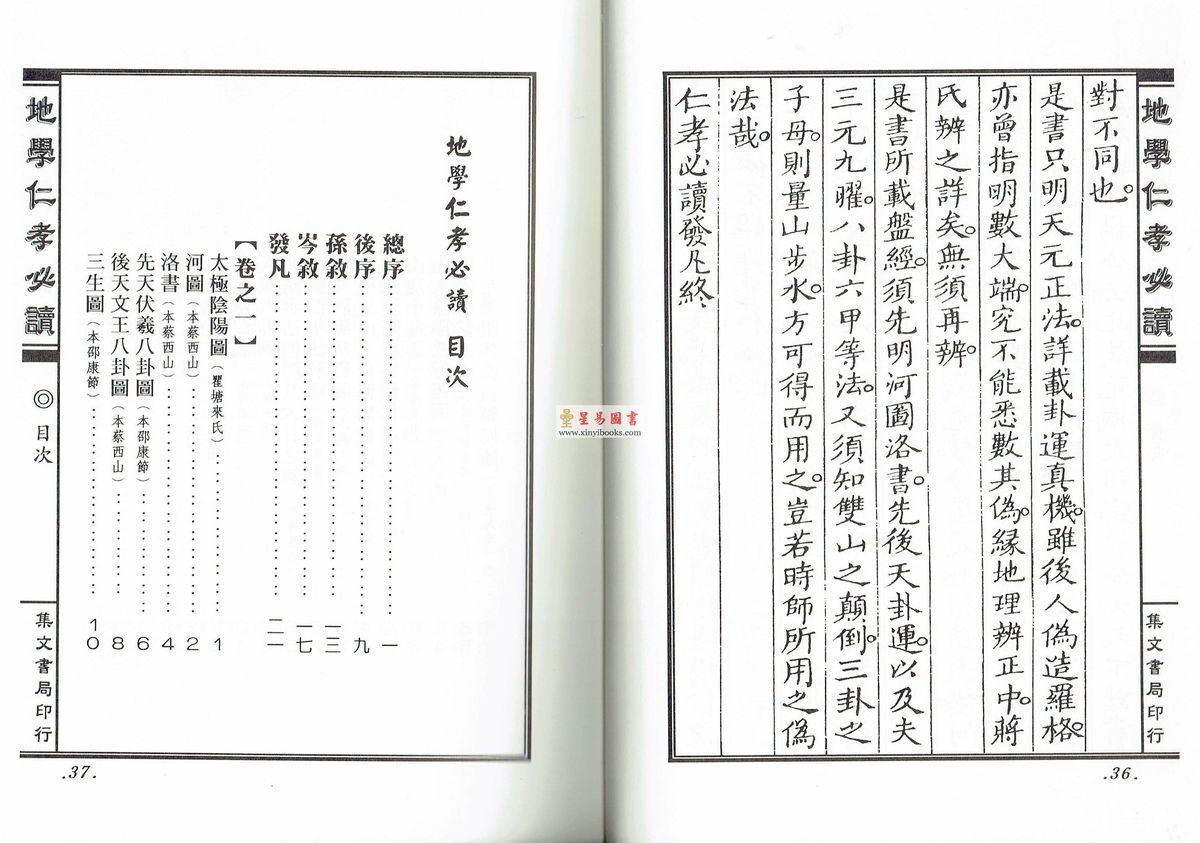 地學仁孝必讀
集文書局印行
對不同也。
是書只明天元正法。詳載卦運真機。雖後人偽造羅格。
亦曾指明數大端。究不能悉數其偽。緣地理辨正中。蔣
氏辨之詳矣。無須再辨。
是書所載盤經。須先明河圖洛書。先後天卦運。以及夫
三元九曜。八卦六甲等法。又須知雙山之顛倒。三卦之
子母。則量山步水。方可得而用之。豈若時師所用之偽
法哉。
仁孝必讀發凡終
.36.
地學仁孝必讀 目次
總序 一
後序 九
孫敘 一三
岑敘 一七
發凡 二一
【卷之一】
太極陰陽圖（瞿塘來氏） 1
河圖（本蔡西山） 2
洛書（本蔡西山） 4
先天伏羲八卦圖（本邵康節） 6
後天文王八卦圖（本蔡西山） 8
三生圖（本邵康節） 10
地學仁孝必讀
◎目次
集文書局印行
.37.
星易圖書
www.xinyibooks.com